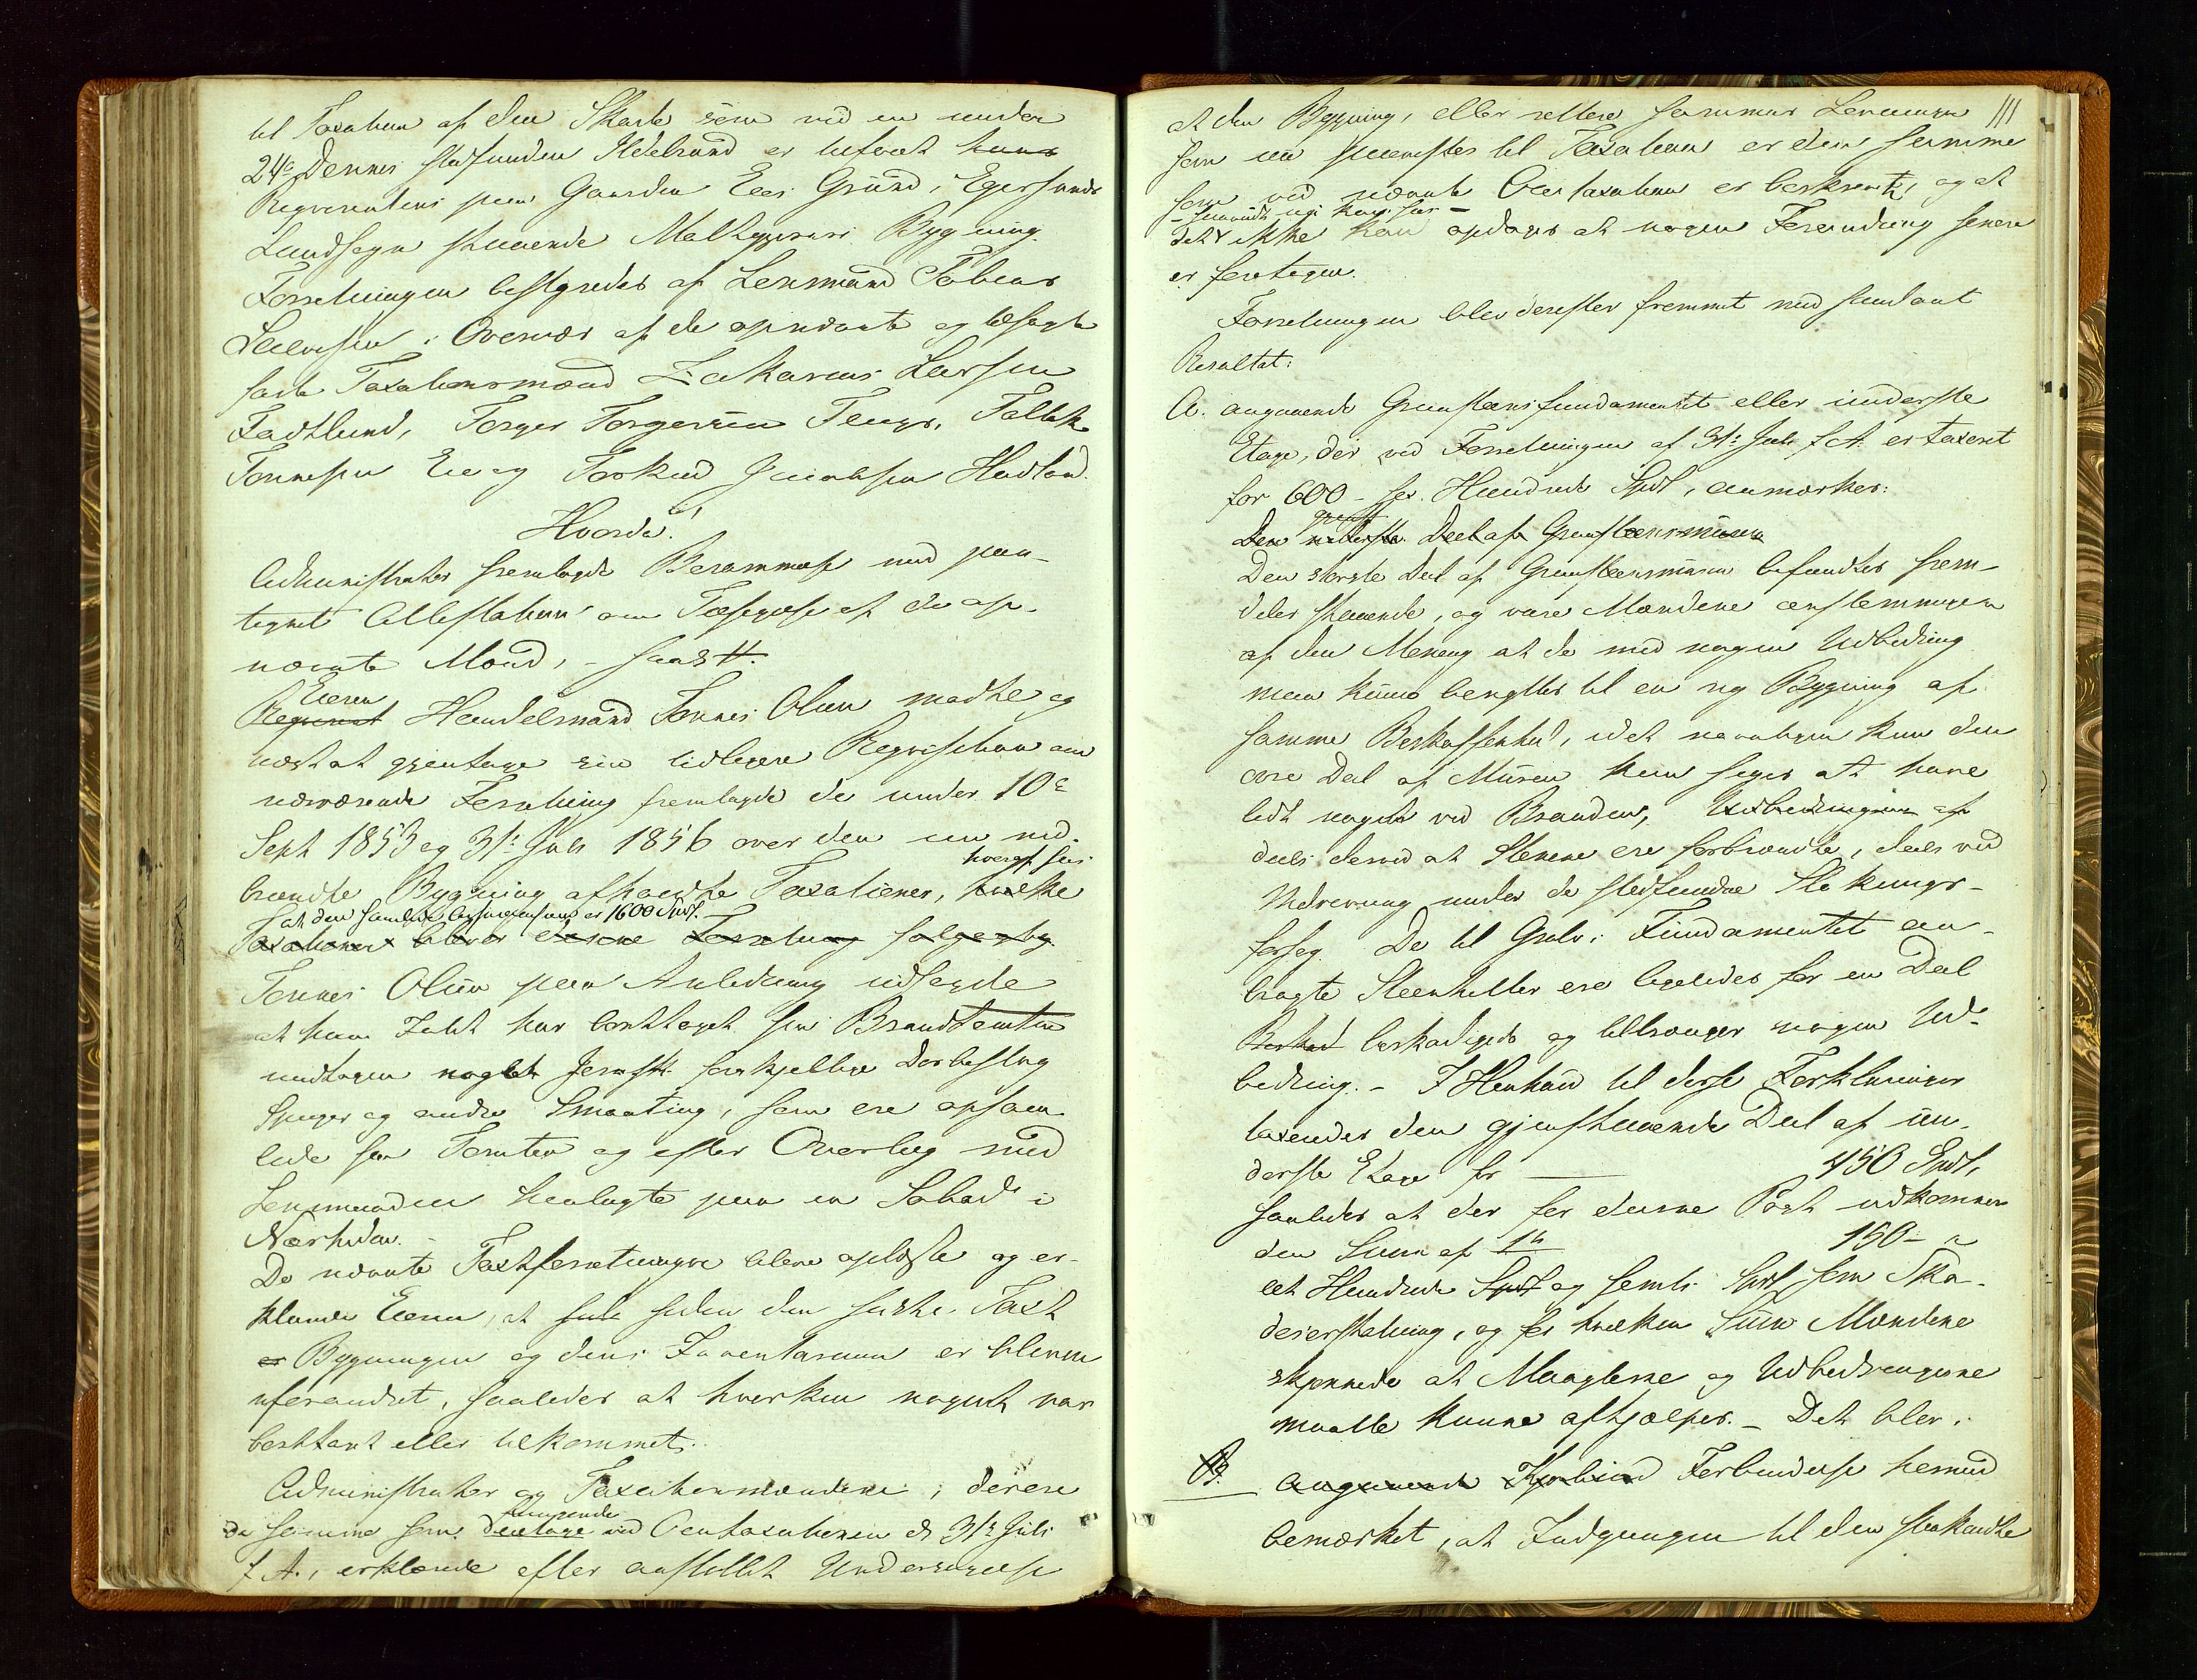 til Taxation af den Skade som ved en under
24de Dennes stedfunden Ildebrand er tilføiet hans
Reqvirentens paa Gaarden Eeg Grund i Egersunds
Landsogn staaende Malt Bygning.
Forretningen bestyredes af Lensmand Tobias
i Overvær af de opnævnte og
faste Taxationsmænd Zakarias Larsen
Tadtlund, Torger Torgersen Tengs, Tollak
Tønnesen Eie og Torkild Jacobsen Hadland.
Hvorda!
Administrator fremlagde Berammelse med paa-
tegnet Attestation om Tilsigelse af de op-
nævnte Mænd, - saadt.
Eieren
Reqvirent Handelsmand Tønnes Olsen mødte og
næst at gjentage sin tidligere Reqvisition om
nærværende Forretning fremlagde de under 10de
Sept 1853 og 31te Juli 1856 over den nu ned-
hvoraf sees
brændte Bygning afholdte Taxationer, hvilke
at den samlede er 1600 Spd.
Taxationer bliver denne Forretning
Tønnes Olsen paa Anledning udsagde
at han Intet har borttaget fra Brandtomten
undtagen noget Jern forskjellige Dørbeslag
Spiger og andre Smaating, som ere opsam-
lede fra Tomten og efter Overlæg med
Lensmanden henlagte paa en Søbod i
Nærheden. -
De nævnte Taxtforretninger bleve oplæste og er-
klærede Eieren, at siden den sidste Taxt
er Bygningen og dens Inventarium er bleven
uforandret, saaledes at hverken noget var
borttaget eller tilkommet.
Administrator og Taxationsmændene, der ere
fungerende
de samme som deeltoge ved Omtaxationen d 31te Juli
f. A., erklærede efter anstillet Undersøgelse
111
at den Bygning, eller rettere sammes Levninger
som nu fremstod til Taxation er den samme
som ved nævnte Omtaxation er beskrevet, og at
det ikke kan opdages at nogen Forandring senere
er foretagen.
Forretningen blev derefter fremmet med saadant
Resultat:
A. angaaende Graasteensfundamentet eller underste
Etage, der ved Forretningen af 31te Juli f. A. er taxeret
for 600 - sex Hundrede Spd, anmærkes:
Den nederste Deel af Graasteensmuren
Den største Deel af Graasteensmuren befandtes frem-
deles staaende, og vare Mændene eenstemmigen
af den Mening at de med nogen Udbedring
maa kunne benyttes til en ny Bygning af
samme Beskaffenhed, idet navnligen kun den
øvre Deel af Muren kan siges at have
lidt noget ved Branden, Udbedringen af
deels derved at Stenene ere forbrændte, deels ved
Nedrivning under de stedfundne Sluknings-
forsøg. De til Gulv i Fundamentet an-
bragte Steenheller ere ligeledes for en Deel
beskadigede og tiltrænger nogen Ud-
bedring. - I Henhold til disse Forklaringer
taxeredes den gjenstaaende Deel af un-
derste Etage for — 450 Spd,
saaledes at der for denne Post udkommer
den Sum af 150 - "
eet Hundrede Spd og femti Spd som Ska-
deserstatning, og for hvilken Sum Mændene
skjønnede at Manglerne og Udbedringerne
maatte kunne afhjælpes. - Det blev i
B. angaaende Forbindelse hermed
bemærket, at Indgangen til den